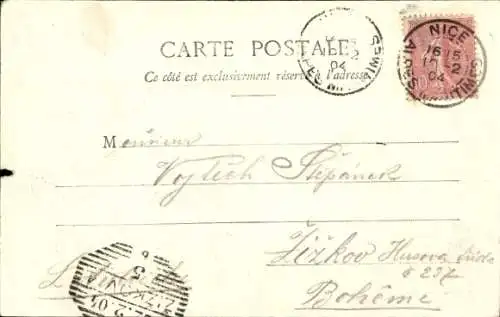 CARTE POSTALE
Ce côté est exclusivement réservé à l'adresse
NICE
16 15
2
04
ALPES MARITIMES
04
Monsieur
Vojtech Štěpánek
Žižkov Husova
237
Bohême
5
ŽIŽKOV